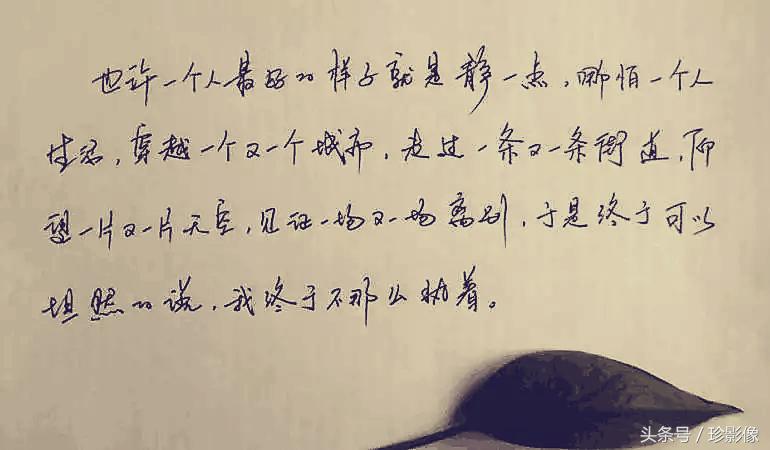 也许一个人最好的样子就是静一点，哪怕一个人
生活，穿越一个又一个城市，走过一条又一条街道，仰
望一片又一片天空，见证一场又一场离别，于是终于可以
坦然的说，我终于不那么执着。
头条号／珍影像